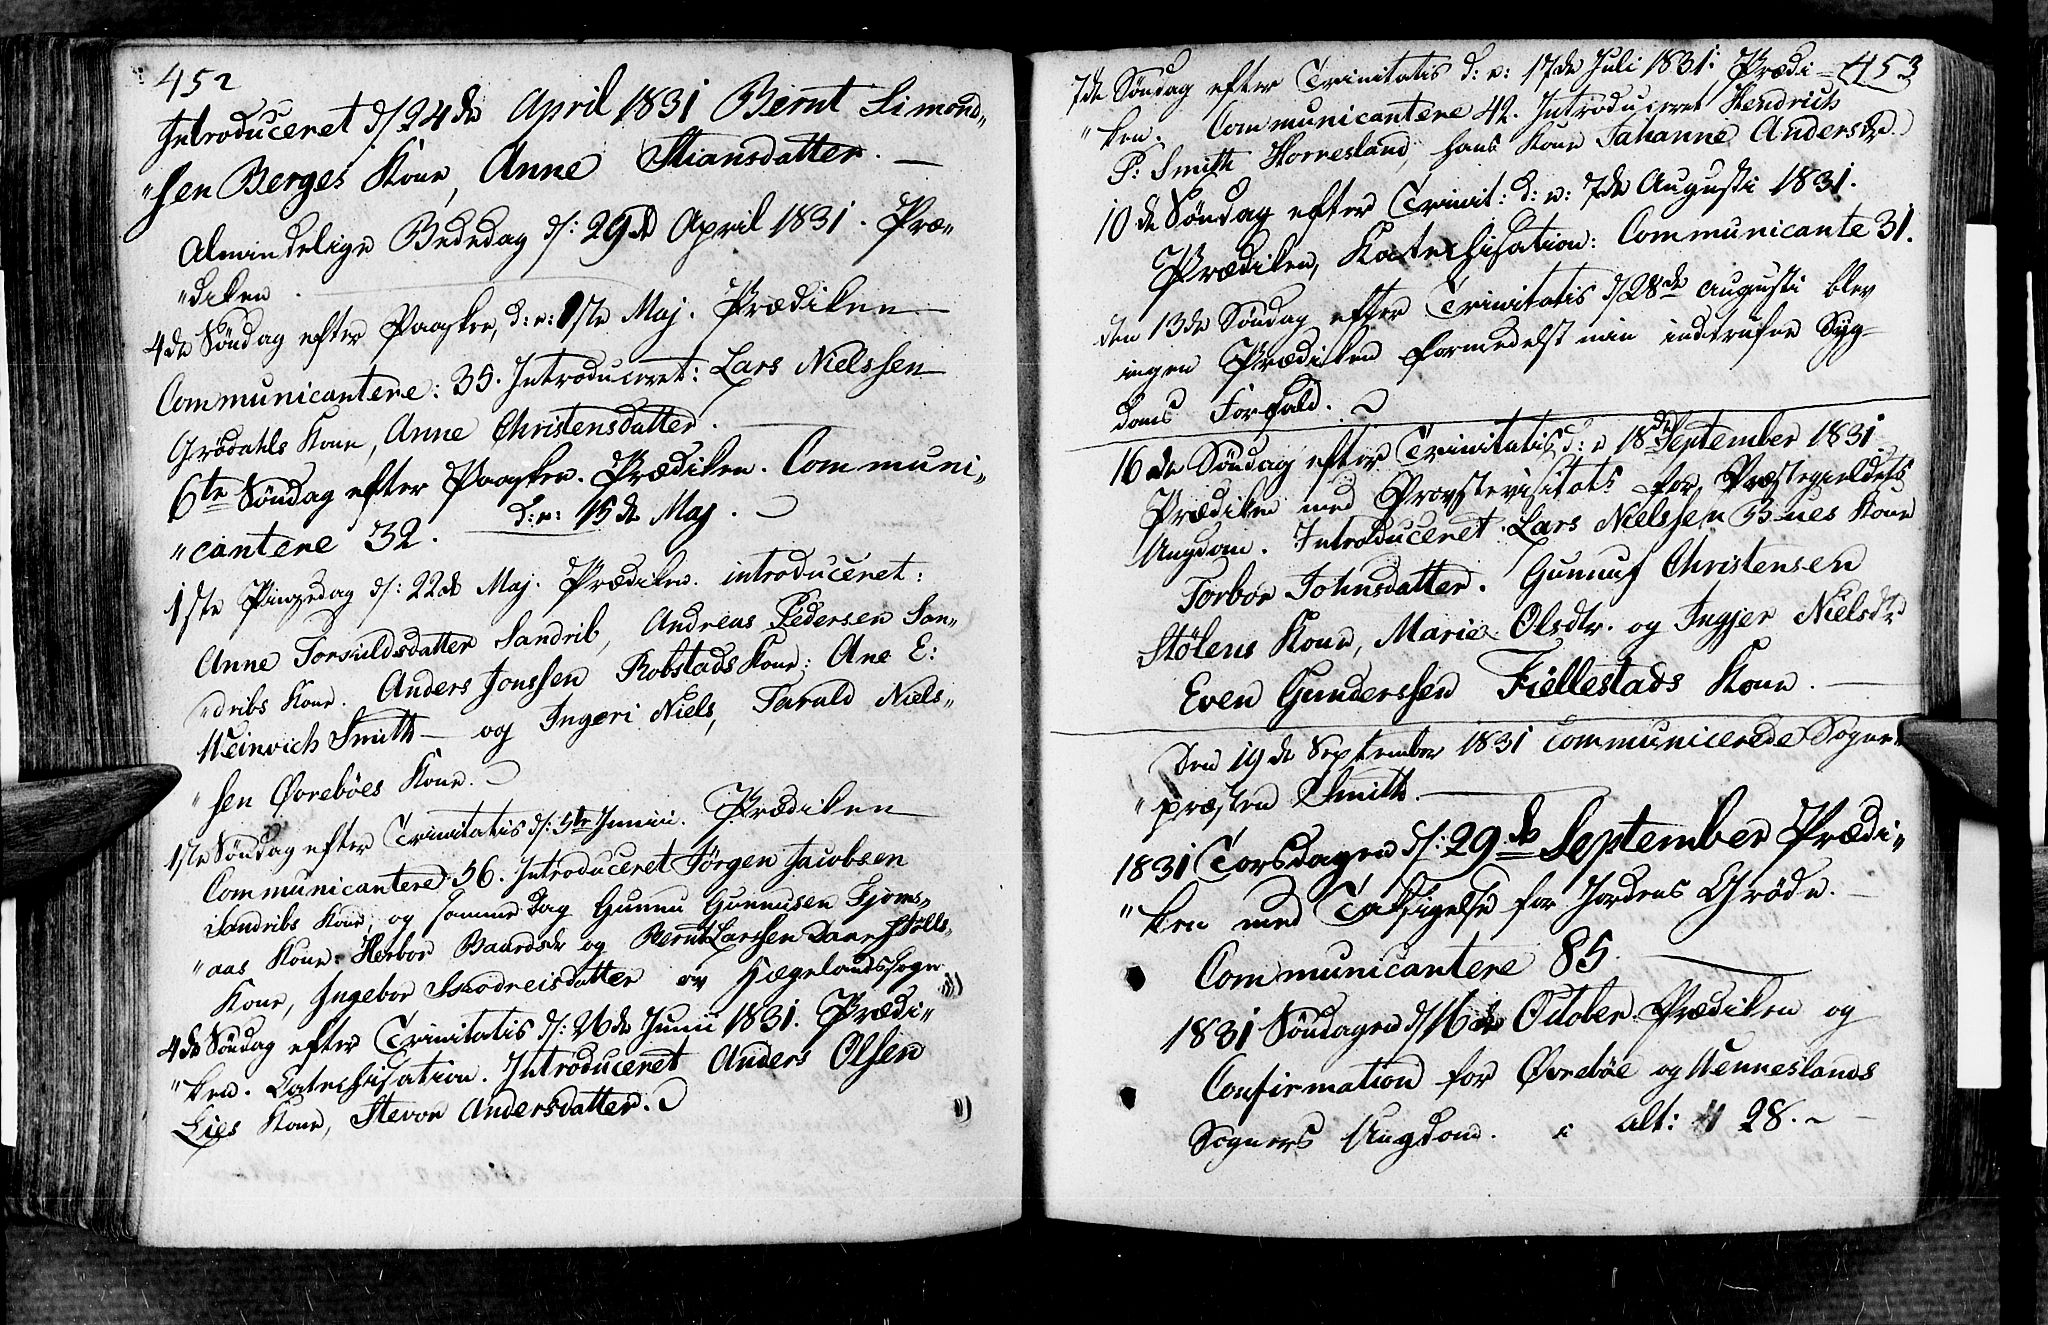 452
Introduceret d/24de April 1831 Bernt Simond„
„sen Berges Kone, Anne Stiansdatter. —
Almindelige Bededag d/: 29de April 1831. Præ„
„diken.
4de Søndag efter Paaske, d: e: 1ste Maj. Prædiken
Communicantere: 35. Introduceret: Lars Nielssen
Grødahls Kone, Anne Christensdatter.
6te Søndag efter Paaske. Prædiken. Communi„
„cantere 32. d: e: 15de Maj.
1ste Pingsedag d/: 22de Maj. Prædiken. introduceret:
Anne Torsuldsdatter Sandrib, Andreas Pedersen San„
„dribs Kone. Anders Jonssen Robstads Kone: Ane E:
Heinrich Smith — og Ingeri Niels, Tarald Niels„
„sen Øvrebøes Kone.
1ste Søndag efter Trinitatis d/: 5te Junii. Prædiken
Communicantere 56. Introduceret Jørgen Jacobsen
Sandribs Kone, og samme Dag Gunnu Gunnusen Fjoms„
„aas Kone: Herbor Baardsdr og Bernt Larssen Danestølls„
Kone, Ingebor Skodreisdatter av Hægelandssogn
4de Søndag efter Trinitatis d/: 26de Junii 1831. Prædi„
„ken. Catechisation. Introduceret Anders Olsen
Lies Kone, Stevor Andersdatter.
453
7de Søndag efter Trinitatis d: e: 17de Juli 1831: Prædi„
„ken. Communicantere 42. Introduceret Hendrich
P: Smith Hornesland, hans Kone Johanne Andersdr.
10de Søndag efter Trinit: d: e: 7de Augusti 1831.
Prædiken, Katechisation: Communicante 31.
den 13de Søndag efter Trinitatis d/28de Augusti blev
ingen Prædiken formedelst min indtrufne Syg-
doms Forfald.
16de Søndag efter Trinitatis d: e 18de September 1831
Prædiken med Provstevisitats for Præstegieldets
Ungdom. Introduceret Lars Nielssen Bues Kone
Torbor Johnsdatter. Gunnuf Christensen
Stølens Kone, Marie Olsdtr. og Ingjer Nielsdtr
Even Gunderssen Fiellestads Kone. —
Den 19de September 1831 communicerede Sogne„
„præsten Smith. —
1831 Torsdagen d/: 29de September Prædi„
„ken med Taksigelse for Jordens Grøde. —
Communicantere 85. —
1831 Søndagen d/16de October Prædiken og
Confirmation for Øvrebøe og Wenneslands
Sognes Ungdom. i alt: 28. ~